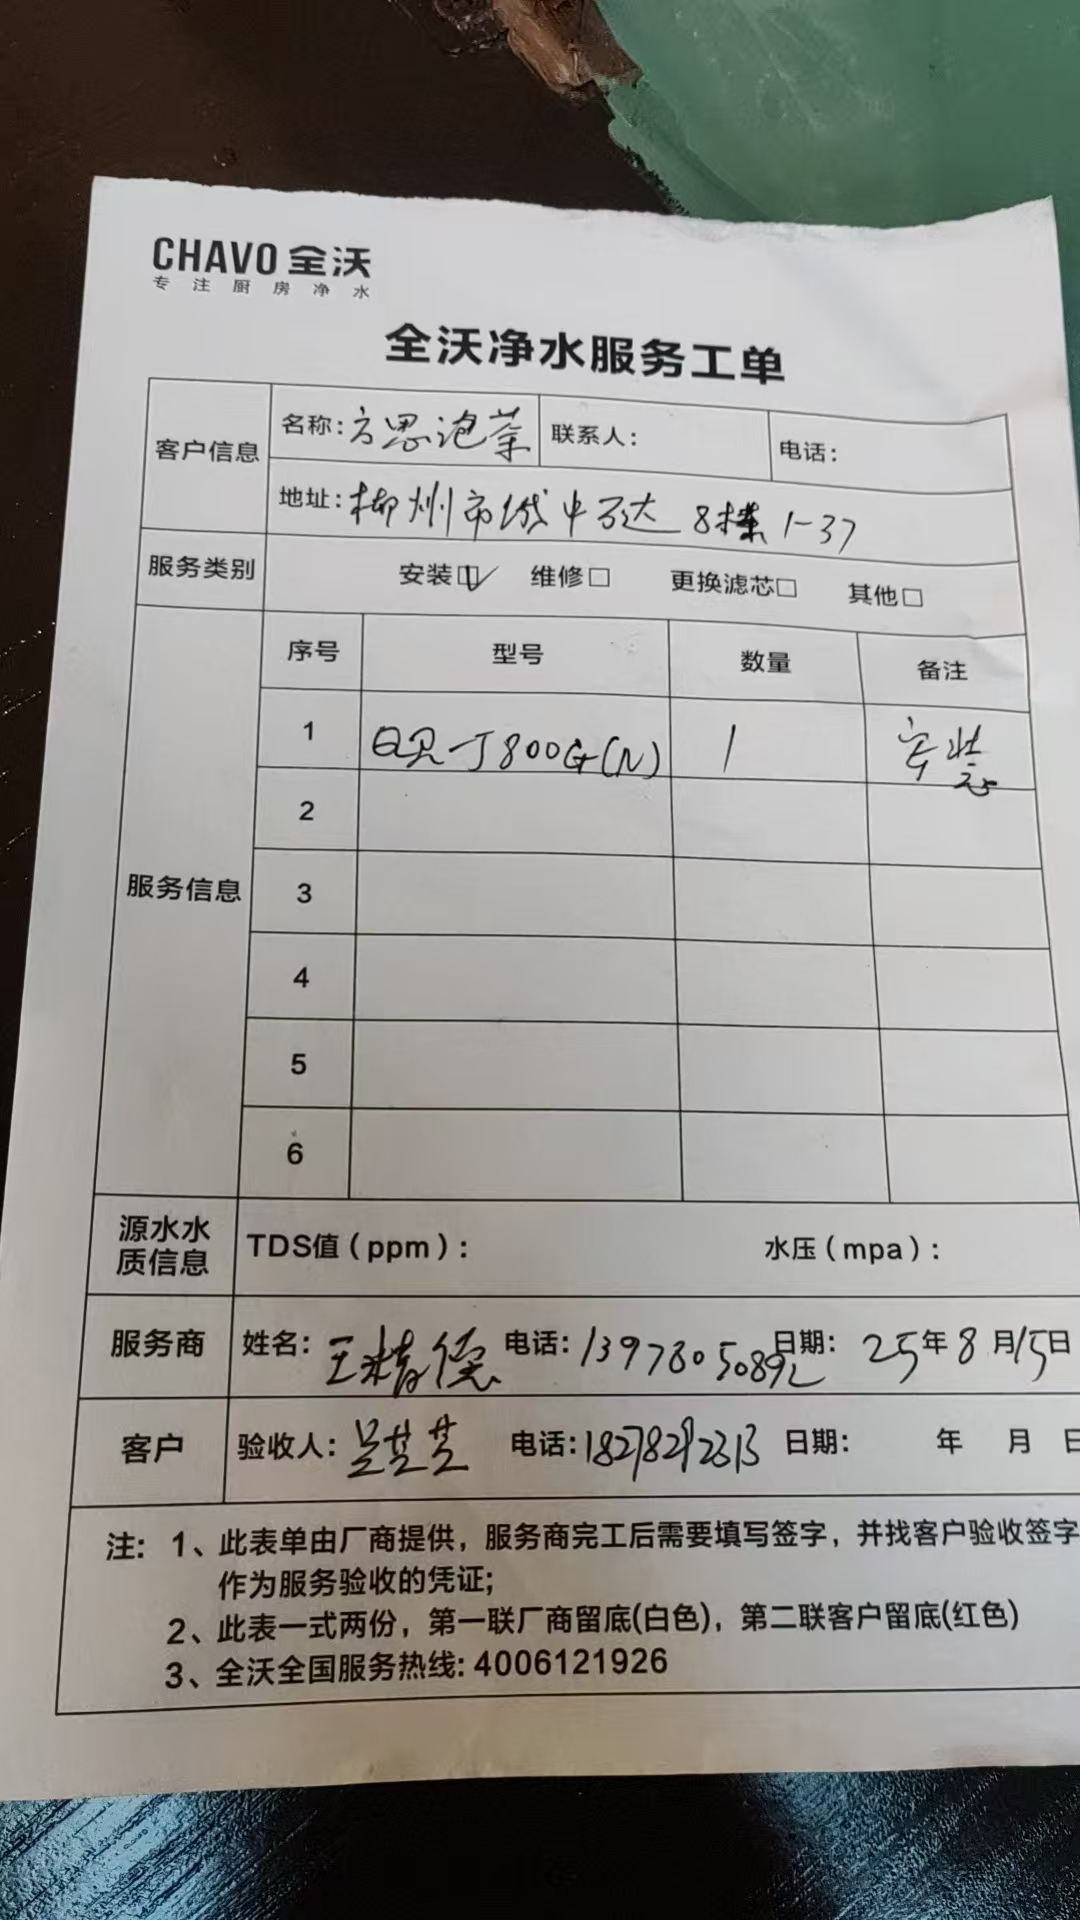 CHAVO 全沃
专注厨房净水
全沃净水服务工单
客户信息 名称：方恩泡菜 联系人： 电话：
地址：柳州市城中万达 8栋 1-37
服务类别 安装☑ 维修□ 更换滤芯□ 其他□
序号 型号 数量 备注
1 800G(N) 1 安装
2
服务信息 3
4
5
6
源水水质信息 TDS值（ppm）： 水压（mpa）：
服务商 姓名：王精德 电话：13978050892 日期：25年8月15日
客户 验收人：吴芝芝 电话：18278292313 日期： 年 月 日
注：1、此表单由厂商提供，服务商完工后需要填写签字，并找客户验收签字
作为服务验收的凭证；
2、此表一式两份，第一联厂商留底(白色)，第二联客户留底(红色)
3、全沃全国服务热线：4006121926